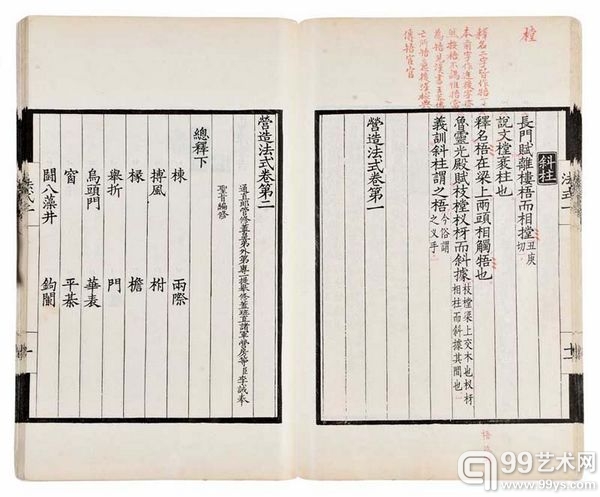 樘
釋名二字皆作牾丁
本前字作連後字亦
為牾見漢書王莽傳
傳牾宦官
法式一
十一
斜柱
長門賦離樓梧而相樘丑庚切
說文樘衺柱也
釋名牾在梁上兩頭相觸牾也
魯靈光殿賦枝樘杈枒而斜據枝樘梁上交木也杈枒相柱而斜據其間也
義訓斜柱謂之梧今俗謂之义手
營造法式卷第一
營造法式卷第二
通直郎管修蓋皇弟外第專一提舉修蓋班直諸軍營房等臣李誡奉
聖旨編修
總釋下
棟 兩際
搏風 柎
椽 檐
舉折 門
烏頭門 華表
窗 平棊
鬭八藻井 鉤闌
法式二
一
99艺术网
www.99ys.com